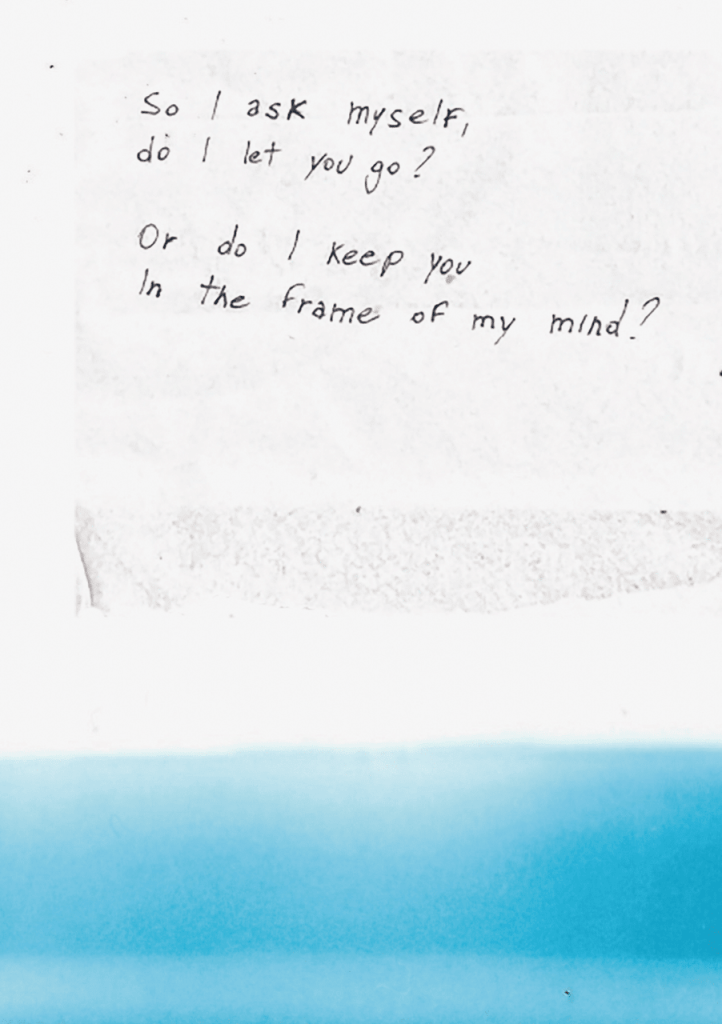 So I ask myself,
do I let you go?
Or do I keep you
In the frame of my mind?